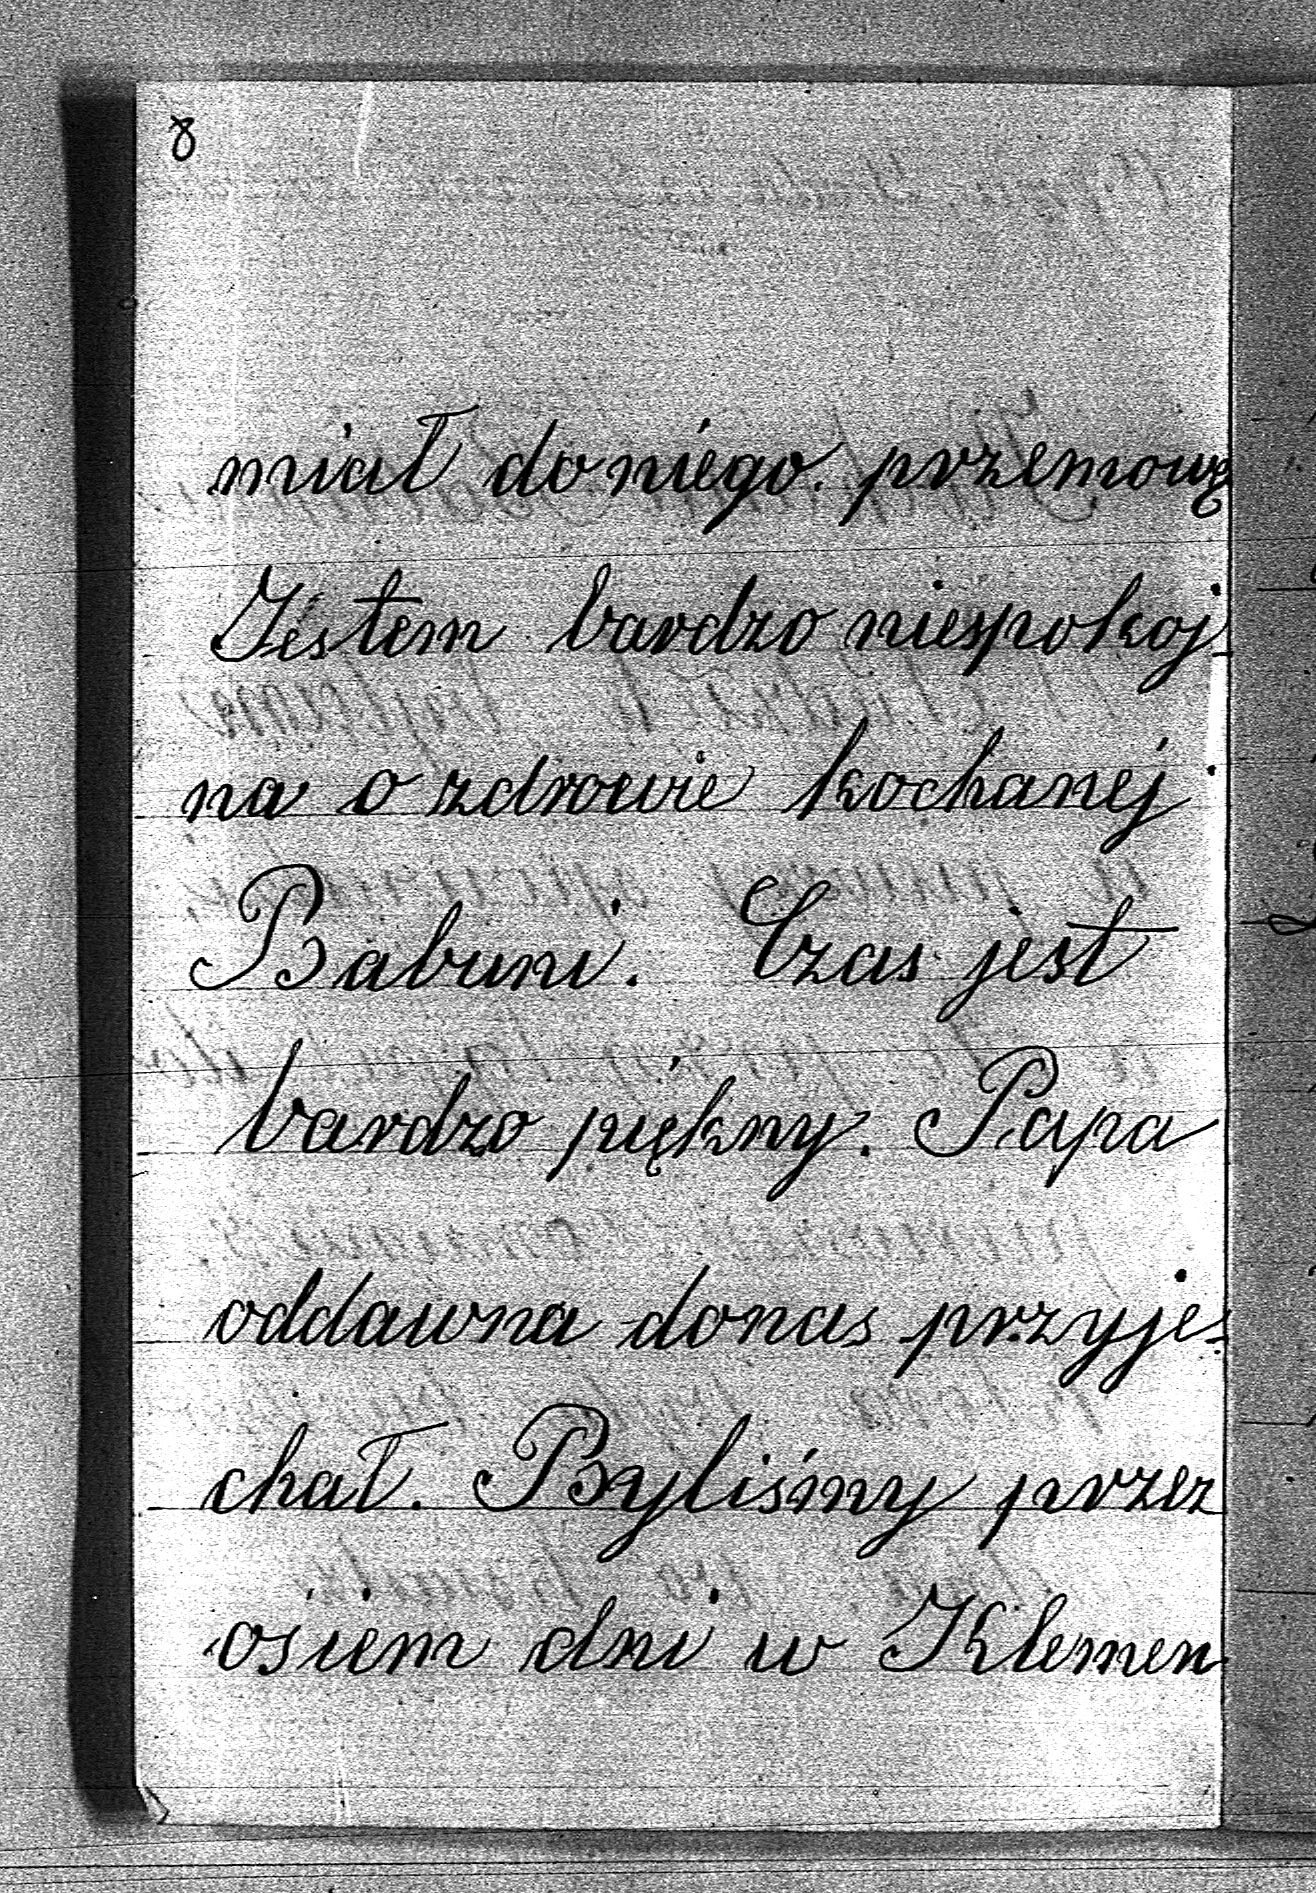 8
miał do niego. przemowę
Jestem bardzo niespokoj-
na o zdrowie kochanej
Babuni. Czas jest
bardzo piękny. Papa
oddawna donas przyje-
chał. Byliśmy przez
osiem dni w Klemen